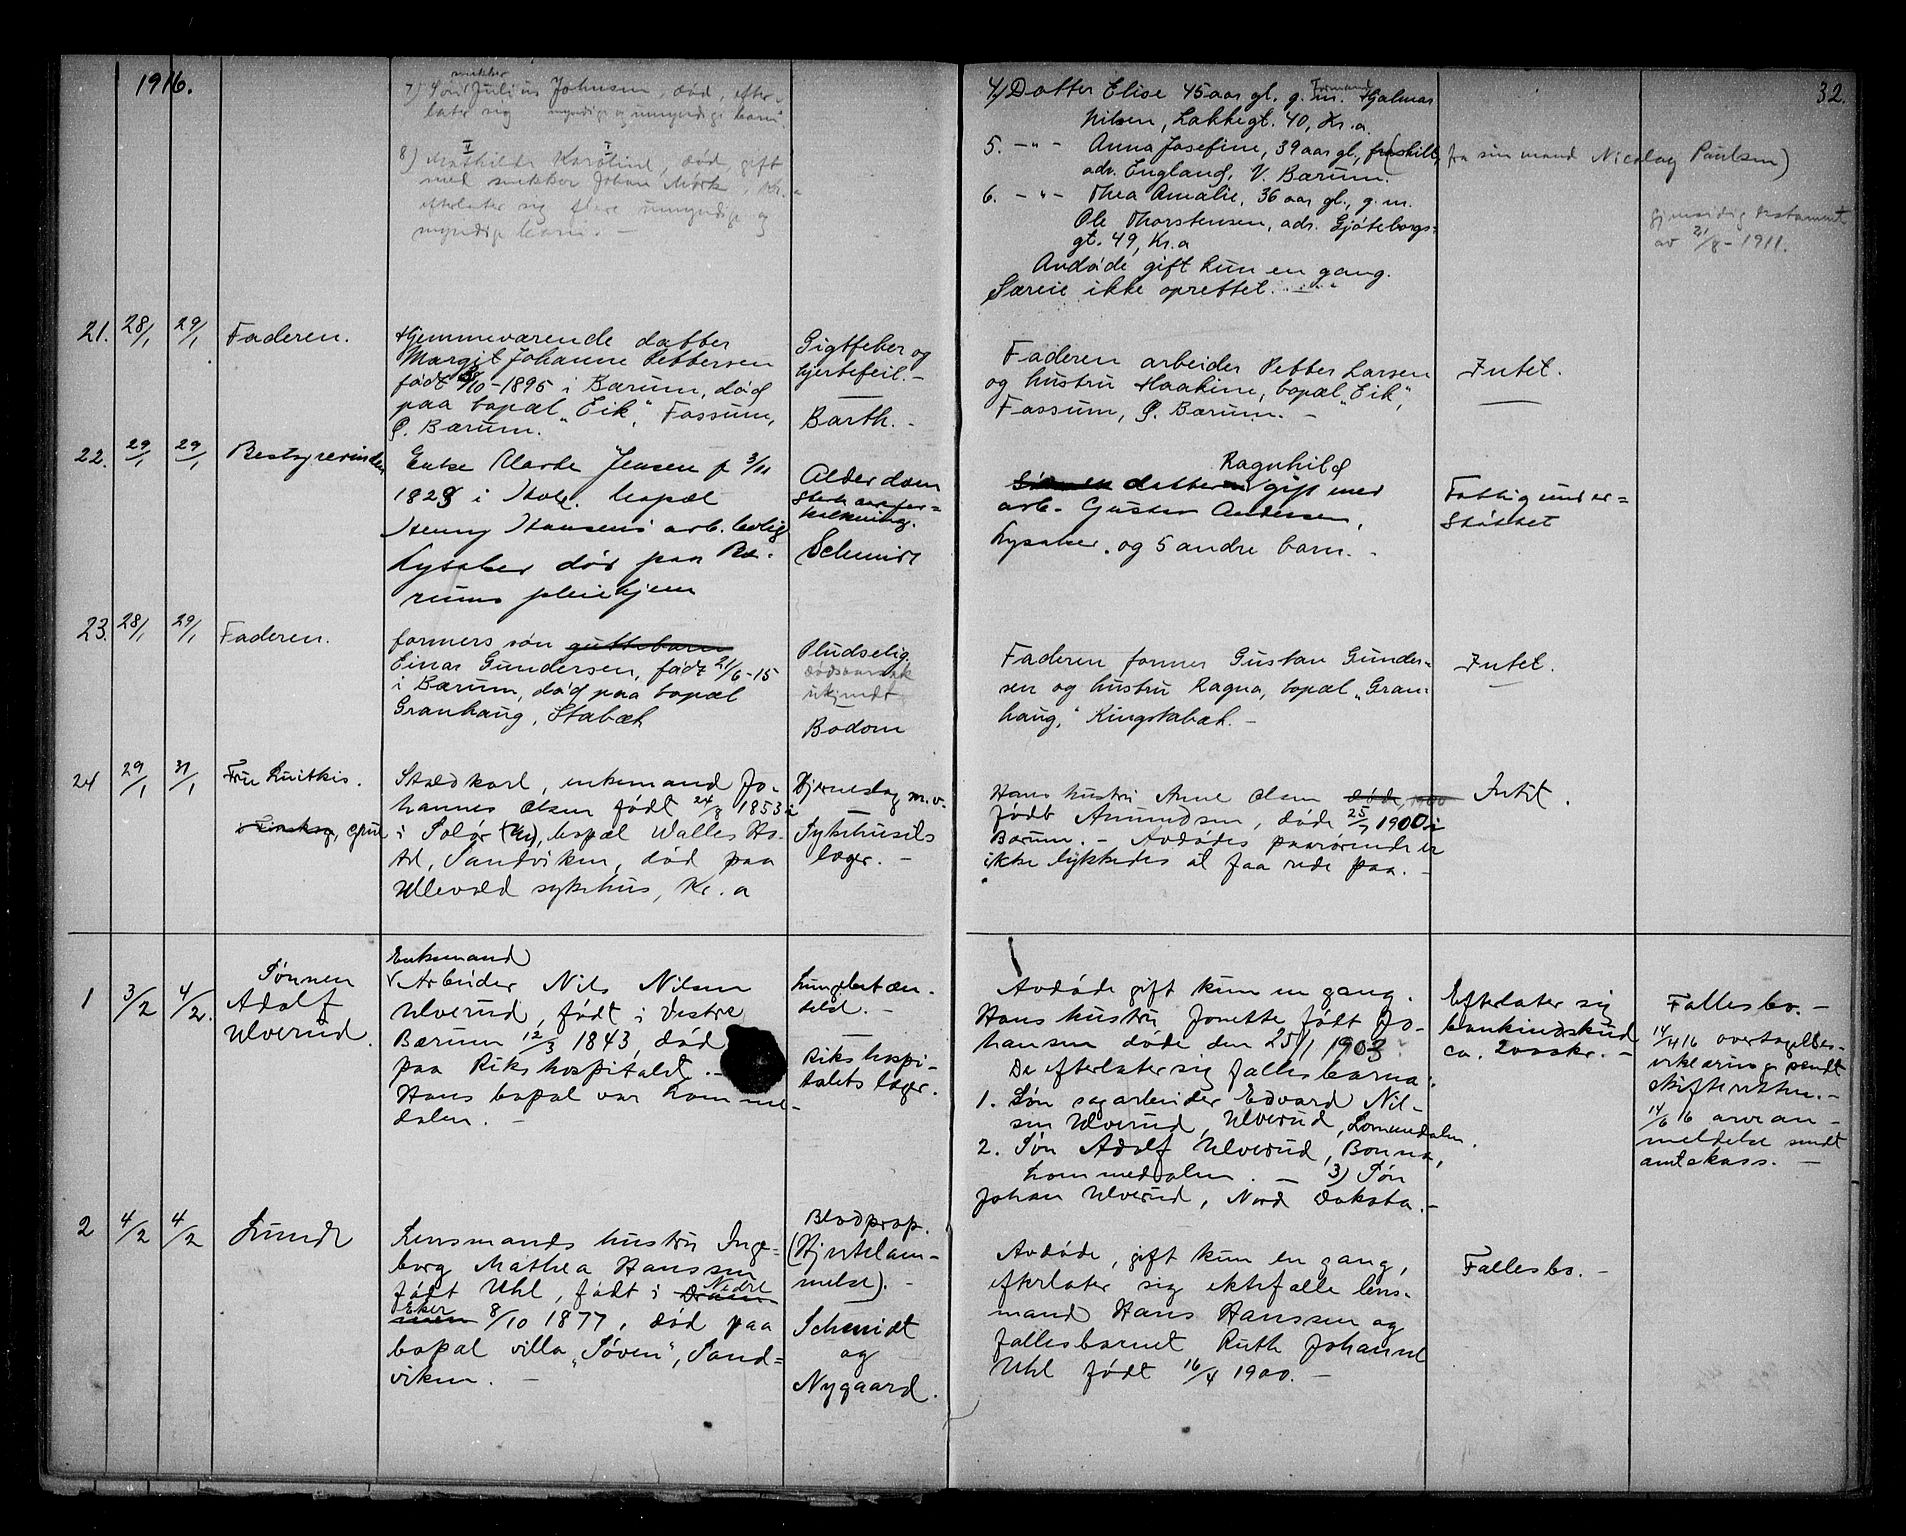 1916.
32.
snekker
7) Søn Julius Johnsen, død, efter-
later sig myndige og umyndige barn.
8) Mathilde Karoline, død, gift
med snekker Johan Mørk,
efterlater sig flere umyndige og
myndige barn. -
4) Datter Elise 45 aar gl. g. m. Formand Hjalmar
Nilsen, Lakkegt. 40, Kr.a.
5. -"- Anna Josefine, 39 aar gl., fraskilt, (fra sin mand Nicolay Paulsen)
adr. England, V. Bærum.
6. -"- Thea Amalie, 36 aar gl., g. m.
Ole Thorstensen, adr. Gjøteborgs-
gt. 49, Kr.a
Avdøde gift kun en gang.
Særeie ikke oprettet.
gjensidig testament
av 21/8 - 1911.
21. 28/1 29/1 Faderen.
Hjemmeværende datter
Margit Johanne Pettersen
født 8/10 - 1895 i Bærum, død
paa bopæl "Eik", Fossum,
Ø. Bærum.
Gigtfeber og
hjertefeil. -
Barth. -
Faderen arbeider Petter Larsen
og hustru Haakine, bopæl "Eik",
Fossum, Ø. Bærum. -
Intet.
22. 29/1 29/1 Bestyrerinden
Enke Marte Jensen f 3/11
1828 i bopæl
Henny Hansens arb. bolig
Lysaker død paa Bæ-
rums pleiehjem
Alderdom
Sterk aarefor-
kalkning.
Schmidt
Ragnhild
datteren gift med
arb. Gustav Andersen,
Lysaker. og 5 andre barn. -
Fattigunder-
støttet
23. 28/1 29/1 Faderen.
formers søn guttebarn
Einar Gundersen, født 21/6 - 15
i Bærum, død paa bopæl
Granhaug, Stabæk
Pludselig
dødsaarsak
ukjendt
Bodom
Faderen former Gustav Gunder-
sen og hustru Ragna, bopæl "Gran-
haug," Ringstabæk. -
Intet.
24 29/1 31/1 Fru Luitkis.
Staldkarl, enkemand Jo-
hannes Olsen født 24/8 1853
i Solør, bopæl Walles Ho-
tel, Sandviken, død paa
Ullevold sykehus, Kr. a
Hjerneslag m.v.
Sykehusets
læger. -
Hans hustru Anne Olsen døde, 1900
født Amundsen, døde 25/7 1900 i
Bærum. - Avdødes paarørende er
ikke lykkedes at faa rede paa. -
Intet.
1 3/2 4/2. Sønnen
Adolf
Ulverud.
Enkemand
Arbeider Nils Nilsen
Ulverud, født i Vestre
Bærum 12/3 1843, død
paa Rikshospitalet. -
Hans bopæl var Lomme-
dalen. -
Lungebetæn-
telse. -
Rikshospi-
talets læger.
Avdøde gift kun en gang.
Hans hustru Jonette født Jo-
hansen døde den 25/1 1903
De efterlater sig fællesbarna:
1. Søn sagarbeider Edvard Nil-
sen Ulverud, Ulverud, Lommedalen.
2. Søn Adolf Ulverud, Bonna,
Lommedalen. - 3) Søn
Johan Ulverud, Nord Dakota. -
Efterlater sig
bankindskud
ca. 2000 kr. -
Fællesbo. -
14/4 16 overtagelses-
erklæring sendt
skifteretten. -
14/6 16 arvean-
meldelse sendt
amtskass. -
2 4/2 4/2 Lunde
Lensmands hustru Inge-
borg Mathea Hanssen
født Uhl, født i Nedre
Eker 8/10 1877, død paa
bopæl villa "Søven", Sand-
viken. -
Blodprop.
(Hjertelam-
melse). -
Schmidt
og
Nygaard.
Avdøde, gift kun en gang,
efterlater sig ektefælle lens-
mand Hans Hanssen og
fællesbarnet Ruth Johanne
Uhl født 16/4 1900. -
Fællesbo. -